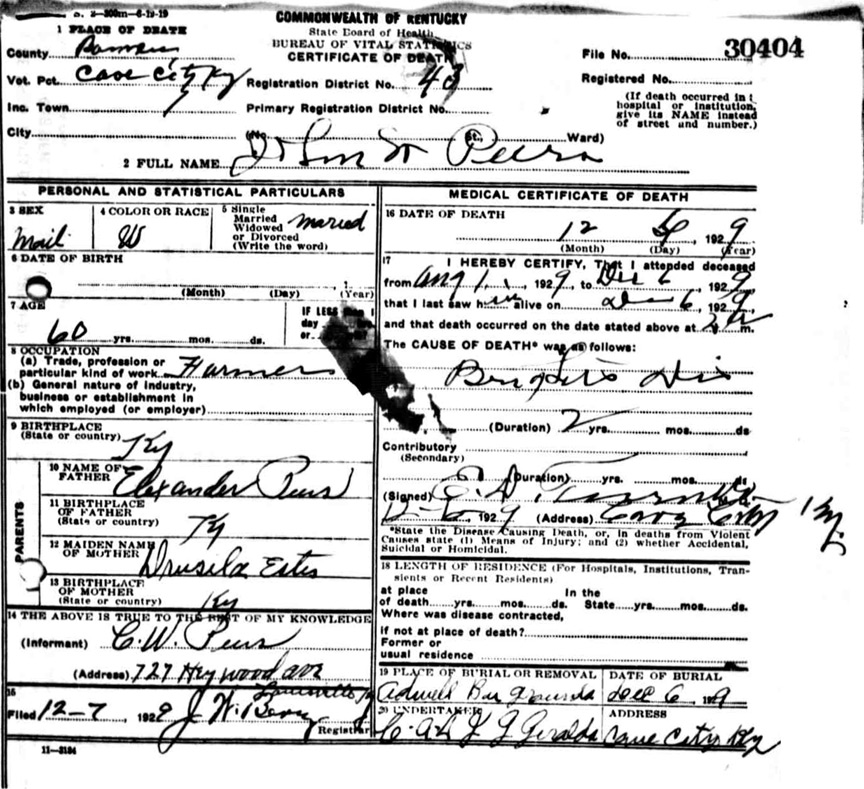 S. 2-200m-6-19-19
COMMONWEALTH OF KENTUCKY
State Board of Health
BUREAU OF VITAL STATISTICS
CERTIFICATE OF DEATH
1 PLACE OF DEATH
County
Vot. Pct. Cave City Ky
Inc. Town
City
Registration District No. 43
Primary Registration District No.
(No. St., Ward)
File No. 30404
Registered No.
(If death occurred in
hospital or institution,
give its NAME instead
of street and number.)
2 FULL NAME John W
PERSONAL AND STATISTICAL PARTICULARS
3 SEX
Mail
4 COLOR OR RACE
W
5 Single
Married
Widowed
or Divorced
(Write the word)
maried
6 DATE OF BIRTH
(Month) (Day) (Year)
7 AGE
60 yrs. mos. ds.
IF LESS
day
or
8 OCCUPATION
(a) Trade, profession or
particular kind of work Farmer
(b) General nature of industry,
business or establishment in
which employed (or employer)
9 BIRTHPLACE
(State or country) Ky
PARENTS
10 NAME OF
FATHER Elexander
11 BIRTHPLACE
OF FATHER
(State or country) Ky
12 MAIDEN NAME
OF MOTHER Drusila Estes
13 BIRTHPLACE
OF MOTHER
(State or country) Ky
14 THE ABOVE IS TRUE TO THE BEST OF MY KNOWLEDGE
(Informant) C. W.
(Address) 727 Heywood ave
Louisville Ky
15
Filed 12-7, 1929 J. W. Berry
Registrar
11-3184
MEDICAL CERTIFICATE OF DEATH
16 DATE OF DEATH
12 6, 1929
(Month) (Day) (Year)
17 I HEREBY CERTIFY, That I attended deceased
from Aug 1, 1929, to Dec 6, 1929
that I last saw him alive on Dec 6, 1929
and that death occurred on the date stated above at 2 m.
The CAUSE OF DEATH* was as follows:
Brights Dis
(Duration) 2 yrs. mos. ds
Contributory
(Secondary)
(Duration) yrs. mos. ds
(Signed) E. D.
12-6, 1929 (Address) Cave City Ky.
*State the Disease Causing Death, or, in deaths from Violent
Causes state (1) Means of Injury; and (2) whether Accidental,
Suicidal or Homicidal.
18 LENGTH OF RESIDENCE (For Hospitals, Institutions, Tran-
sients or Recent Residents)
At place In the
of death yrs. mos. ds. State yrs. mos. ds.
Where was disease contracted,
if not at place of death?
Former or
usual residence
19 PLACE OF BURIAL OR REMOVAL
DATE OF BURIAL
Dec 6, 1929
20 UNDERTAKER
ADDRESS
Cave City Ky